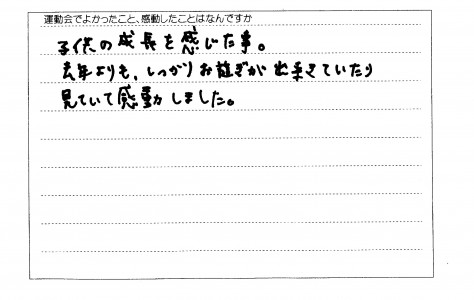 運動会でよかったこと、感動したことはなんですか
子供の成長を感じた事。
去年よりも、しっかりお遊ぎが出来ていたり
見ていて感動しました。